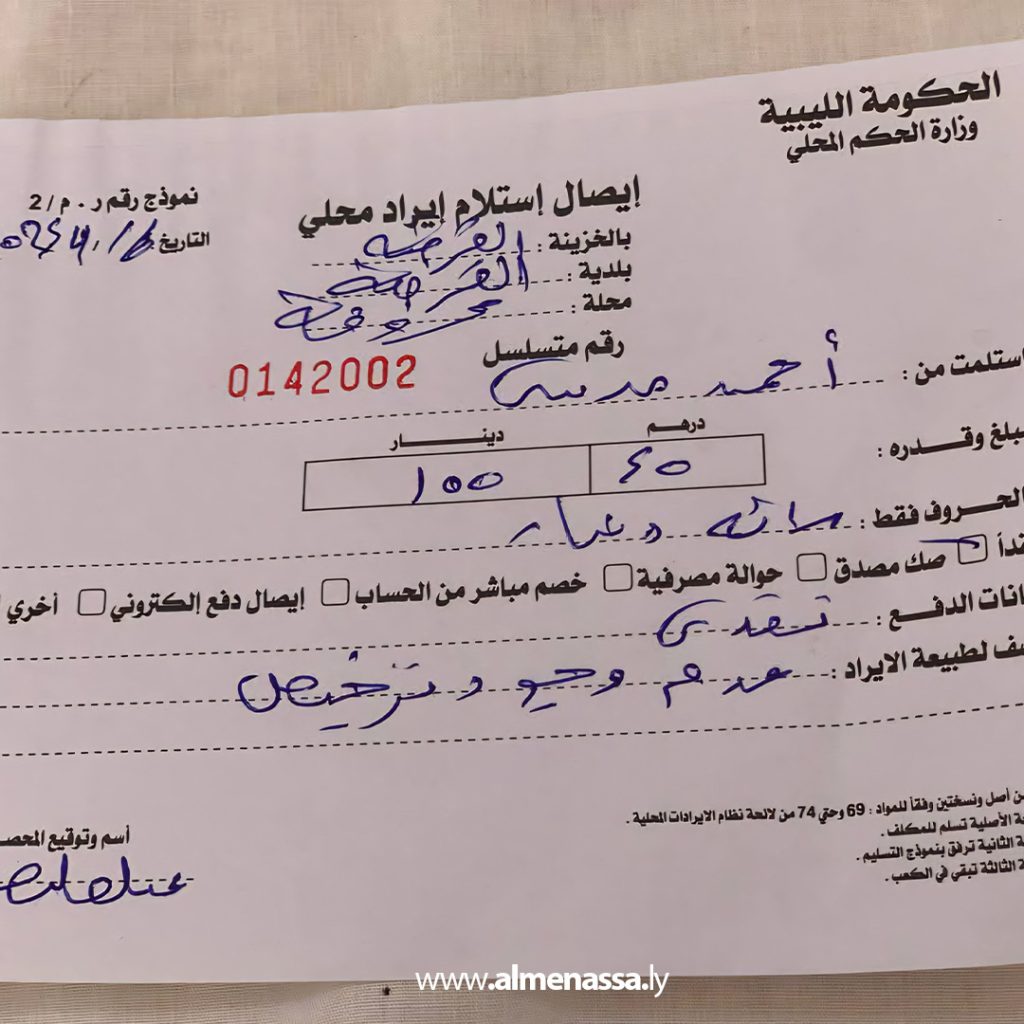 الحكومة الليبية
وزارة الحكم المحلي
نموذج رقم ر . م / 2
إيصال إستلام إيراد محلي
التاريخ
بالخزينة : القرضة
بلدية : القرضة
محلة :
رقم متسلسل
0142002
استلمت من : أحمد
مبلغ وقدره :
درهم دينار
100
الحروف فقط : مائة دينار
صك مصدق حوالة مصرفية خصم مباشر من الحساب إيصال دفع إلكتروني أخري
انات الدفع : نقدي
ف لطبيعة الايراد : عدم وجود ترخيص
ن أصل ونسختين وفقاً للمواد : 69 وحتي 74 من لائحة نظام الايرادات المحلية .
ة الأصلية تسلم للمكلف .
ة الثانية ترفق بنموذج التسليم .
ة الثالثة تبقي في الكعب .
أسم وتوقيع المحص
www.almenassa.ly